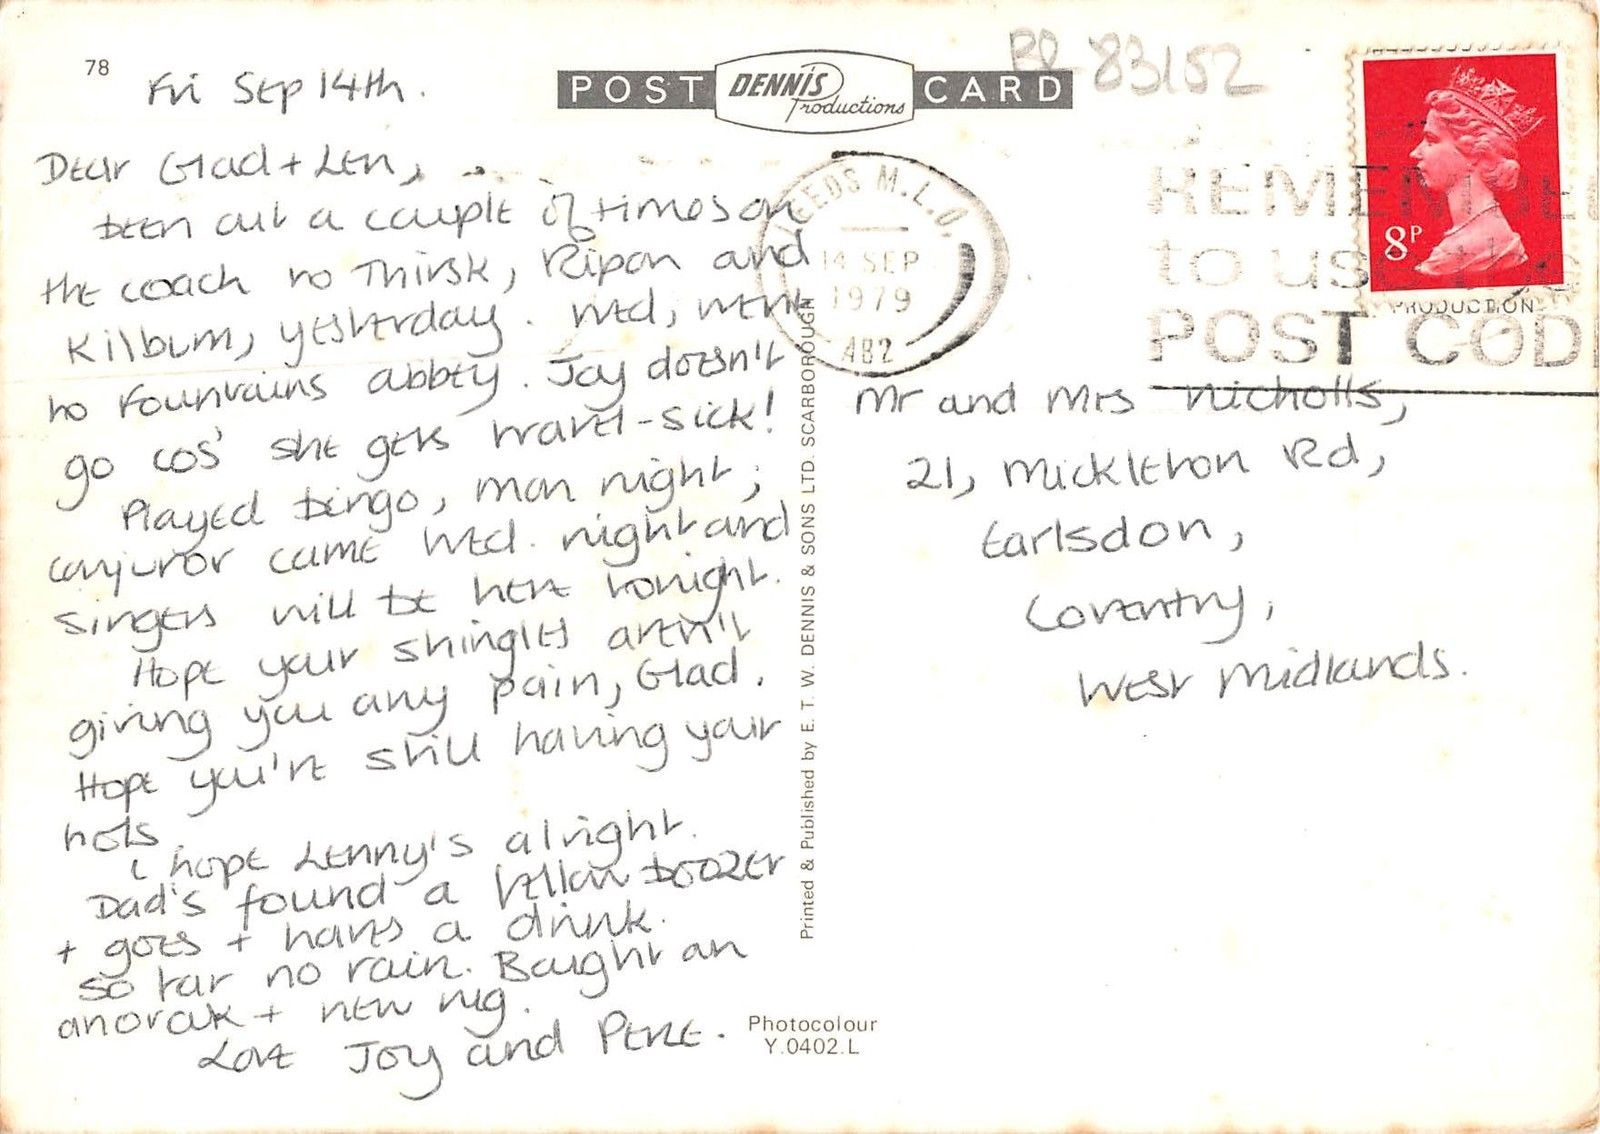 78
Fri Sep 14th.
POST DENNIS Productions CARD
BQ 83152
Dear Glad + Len,
been out a couple of times on
the coach to Thirsk, Ripon and
Kilburn, yesterday. Wed, went
to Fountains abbey. Joy doesn't
go cos' she gets travel-sick!
Played bingo, mon night;
conjuror came Wed. night and
singers will be here tonight.
Hope your shingles aren't
giving you any pain, Glad.
Hope you're still having your
hols
i hope Lenny's alright.
Dad's found a fellow boozer
+ goes + has a drink.
So far no rain. Bought an
anorak + new rug.
Love Joy and Pete.
LEEDS M.L.O.
14 SEP
1979
AB2
REMEMBE
to use the
POST CODE
8P
PRODUCTION
Mr and Mrs Nicholls,
21, Mickleton Rd,
Earlsdon,
Coventry,
West Midlands.
Printed & Published by E. T. W. DENNIS & SONS LTD. SCARBOROUGH
Photocolour
Y.0402.L